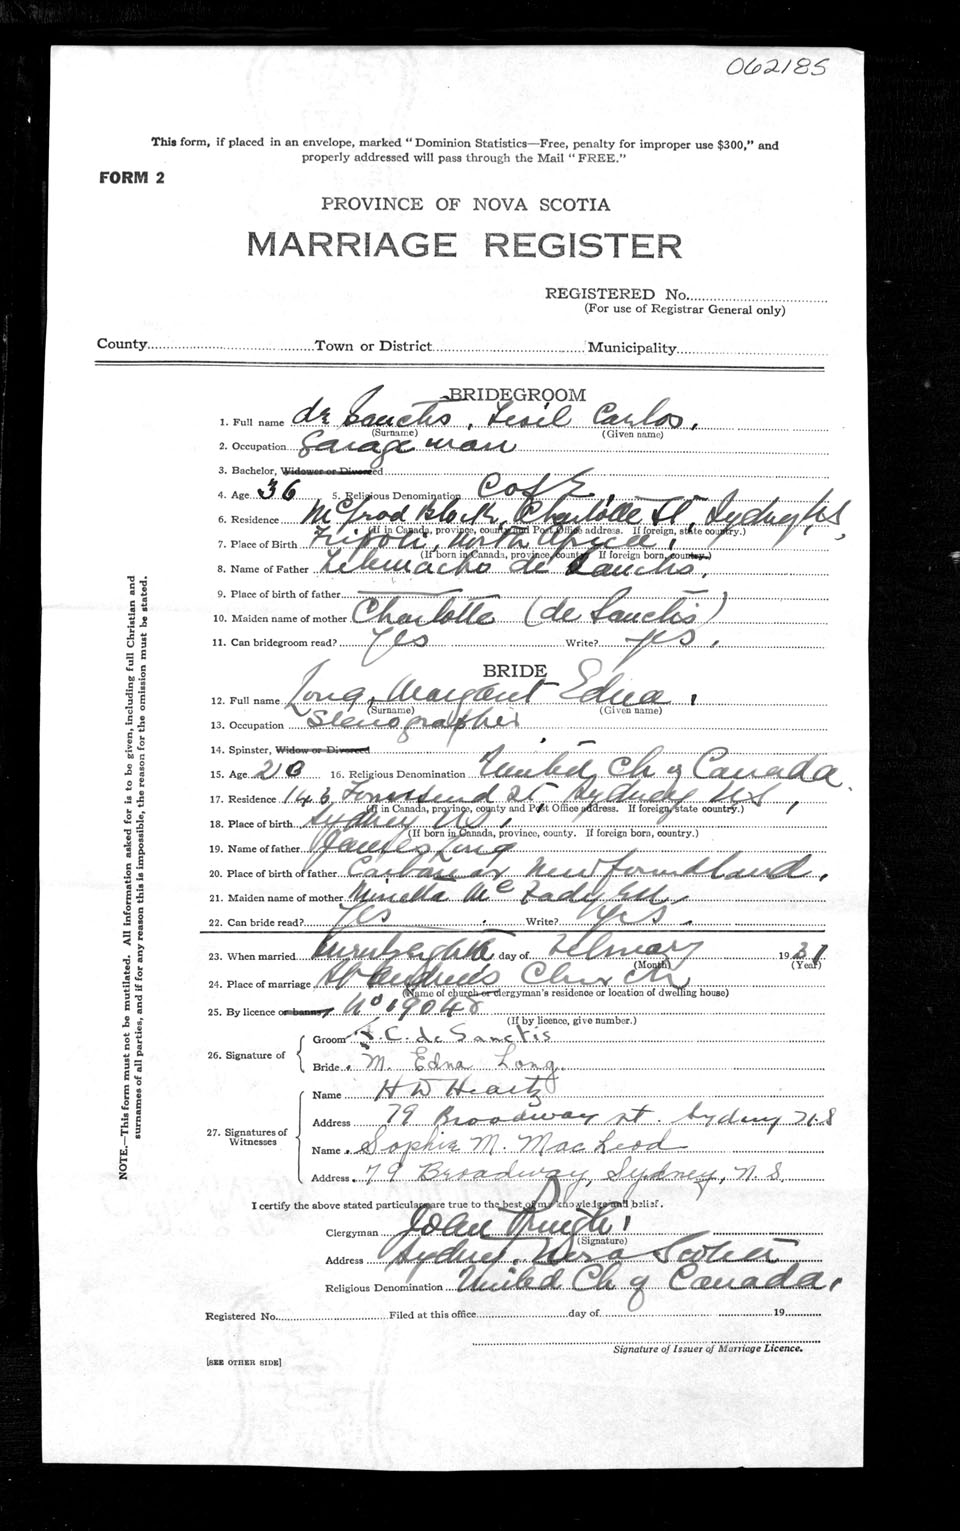 062185
This form, if placed in an envelope, marked "Dominion Statistics—Free, penalty for improper use $300," and
properly addressed will pass through the Mail "FREE."
FORM 2
PROVINCE OF NOVA SCOTIA
MARRIAGE REGISTER
REGISTERED No.
(For use of Registrar General only)
County Town or District Municipality
BRIDEGROOM
1. Full name de Sanctis, Carlos,
(Surname) (Given name)
2. Occupation Garage man
3. Bachelor, Widower or Divorced
4. Age 36 5. Religious Denomination C of E
6. Residence Block, Charlotte St, Sydney, NS,
(If in Canada, province, county and Post Office address. If foreign, state country.)
7. Place of Birth North Africa,
(If born in Canada, province, county. If foreign born, country.)
8. Name of Father de Sanctis.
9. Place of birth of father
10. Maiden name of mother Charlotte (de Sanctis)
11. Can bridegroom read? Yes Write? yes.
BRIDE
12. Full name Long, Margaret Edna,
(Surname) (Given name)
13. Occupation Stenographer
14. Spinster, Widow or Divorced
15. Age 16. Religious Denomination United Ch of Canada.
17. Residence Townsend St Sydney NS,
(If in Canada, province, county and Post Office address. If foreign, state country.)
18. Place of birth Sydney NS,
(If born in Canada, province, county. If foreign born, country.)
19. Name of father James Long
20. Place of birth of father Carbonear Newfoundland.
21. Maiden name of mother Mc
22. Can bride read? Yes Write? Yes.
23. When married day of February 1931
(Month) (Year)
24. Place of marriage St Andrew's Church
(Name of church or clergyman's residence or location of dwelling house)
25. By licence or banns No 19048
(If by licence, give number.)
26. Signature of
Groom C. de Sanctis
Bride M. Edna Long.
27. Signatures of Witnesses
Name H W Heartz
Address 79 Broadway st. Sydney N.S
Name Sophie M. MacLeod
Address 79 Broadway, Sydney, N.S.
I certify the above stated particulars are true to the best of my knowledge and belief.
Clergyman John Pringle,
(Signature)
Address Sydney, Nova Scotia
Religious Denomination United Ch of Canada.
Registered No. Filed at this office day of 19
Signature of Issuer of Marriage Licence.
[SEE OTHER SIDE]
NOTE.—This form must not be mutilated. All information asked for is to be given, including full Christian and
surnames of all parties, and if for any reason this is impossible, the reason for the omission must be stated.